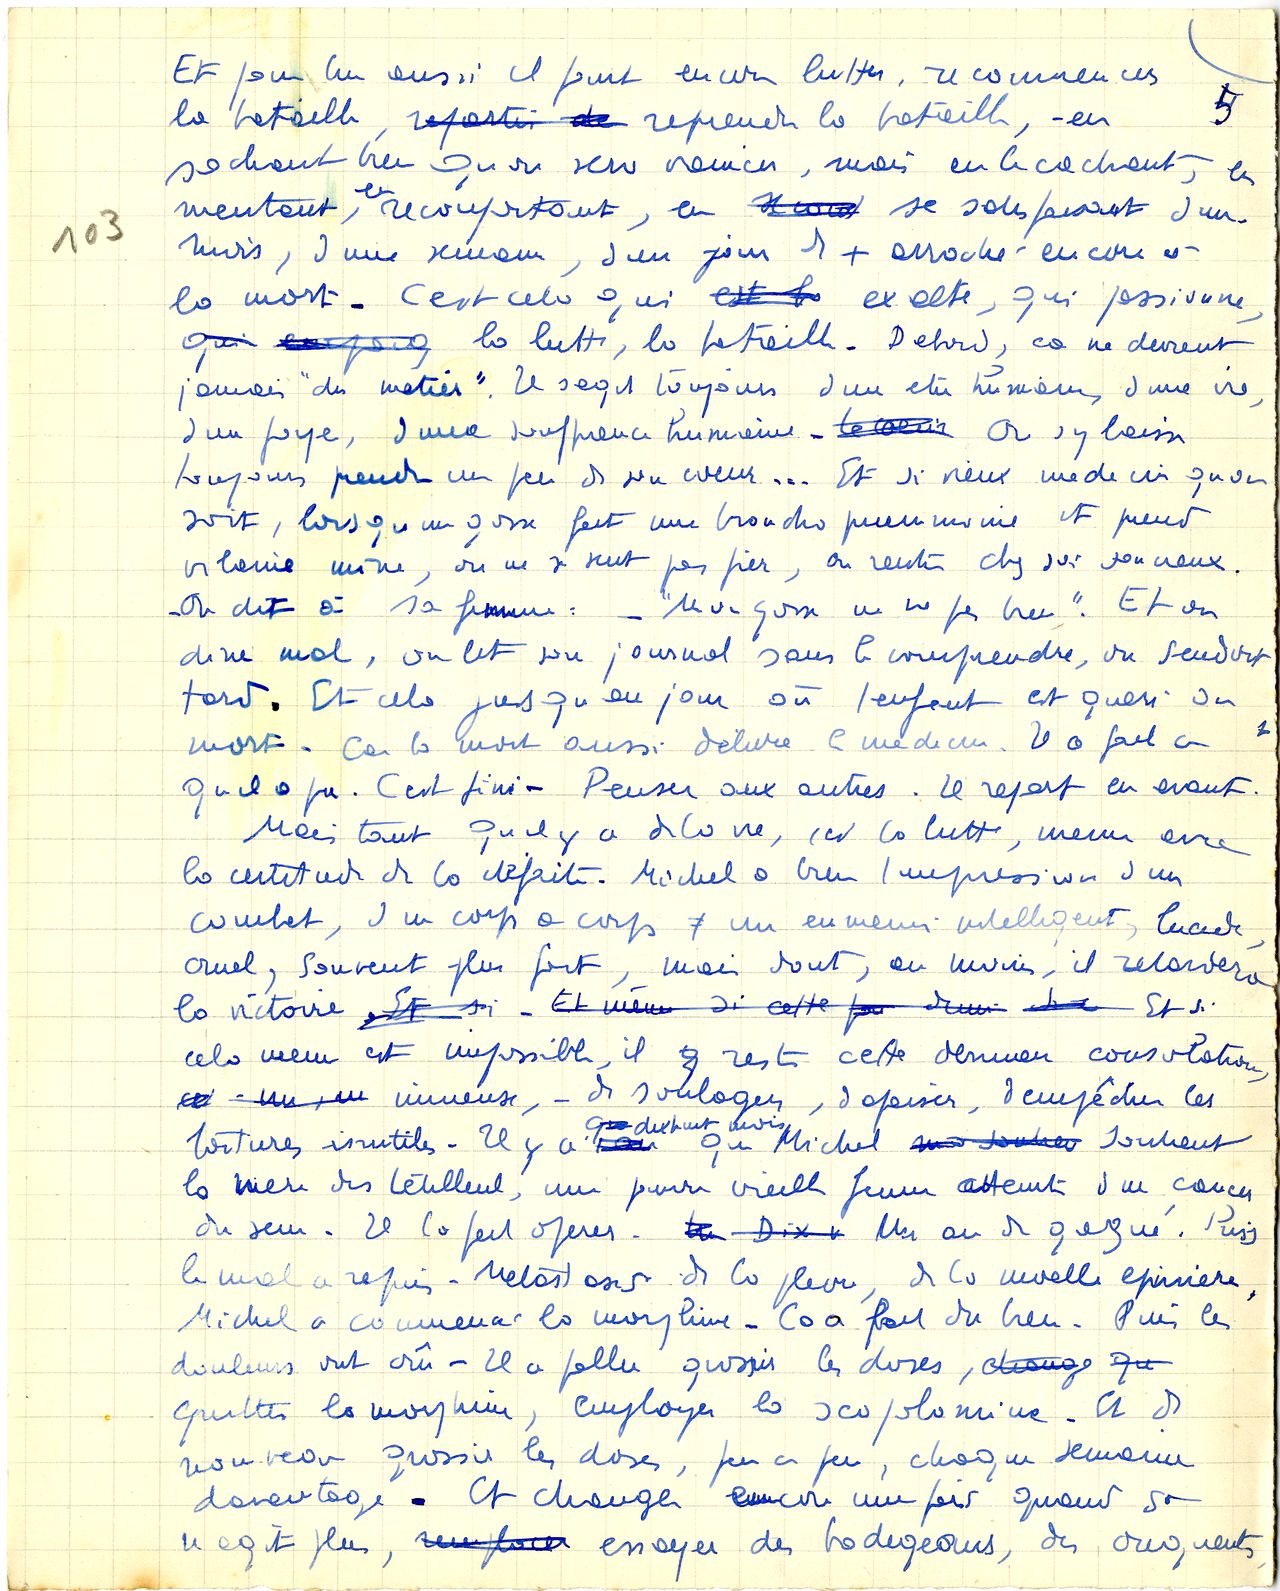 Et pour lui aussi il faut encore lutter, recommencer
5
la bataille, repartir de reprendre la bataille, - en
sachant bien qu'on sera vaincu, mais en le cachant, en
mentant, en réconfortant, en se satisfaisant d'un
103
mois, d'une semaine, d'un jour de + arraché encore à
la mort - C'est cela qui est la exalte, qui passionne,
qui la lutte, la bataille - D'abord, ça ne devient
jamais "du métier". Il s'agit toujours d'un être humain, d'une vie,
d'un foyer, d'une souffrance humaine - Le coeur On y laisse
toujours prendre un peu de son coeur... Et si vieux médecin qu'on
soit, lorsqu'un gosse fait une broncho pneumonie et prend
vilaine mine, on ne se sent pas fier, on rentre chez soi soucieux.
- On dit à sa femme : - "Mon gosse ne va pas bien". Et on
dîne mal, on lit son journal sans le comprendre, on s'endort
tard. Et cela jusqu'au jour où l'enfant est guéri ou
mort - Car la mort aussi délivre le médecin. Il a fait ce
qu'il a pu. C'est fini - Penser aux autres. Il repart en avant.
Mais tant qu'il y a de la vie, c'est la lutte, même avec
la certitude de la défaite. Michel a bien l'impression d'un
combat, d'un corps à corps un ennemi intelligent, lucide,
cruel, souvent plus fort, mais dont, au moins, il retardera
la victoire Et si - Et même si cette Et si
cela même est impossible, il reste cette dernière consolation,
immense, - de soulager, d'apaiser, d'empêcher les
tortures inutiles - Il y a dixhuit mois que Michel soutient
la mère des Tétilleul, une pauvre vieille femme atteinte d'un cancer
du sein - Il l'a fait opérer. Dix Un an de gagné. Puis
le mal a repris - Métastases de la plèvre, de la moelle épinière,
Michel a commencé la morphine - Ca a fait du bien - Puis les
douleurs ont crû - Il a fallu grossir les doses, change
quitter la morphine, employer la scopolamine - Et de
nouveau grossir les doses, peu à peu, chaque semaine
davantage - Et changer encore une fois quand ça
n'agit plus, remplacer essayer des badigeons, des onguents,